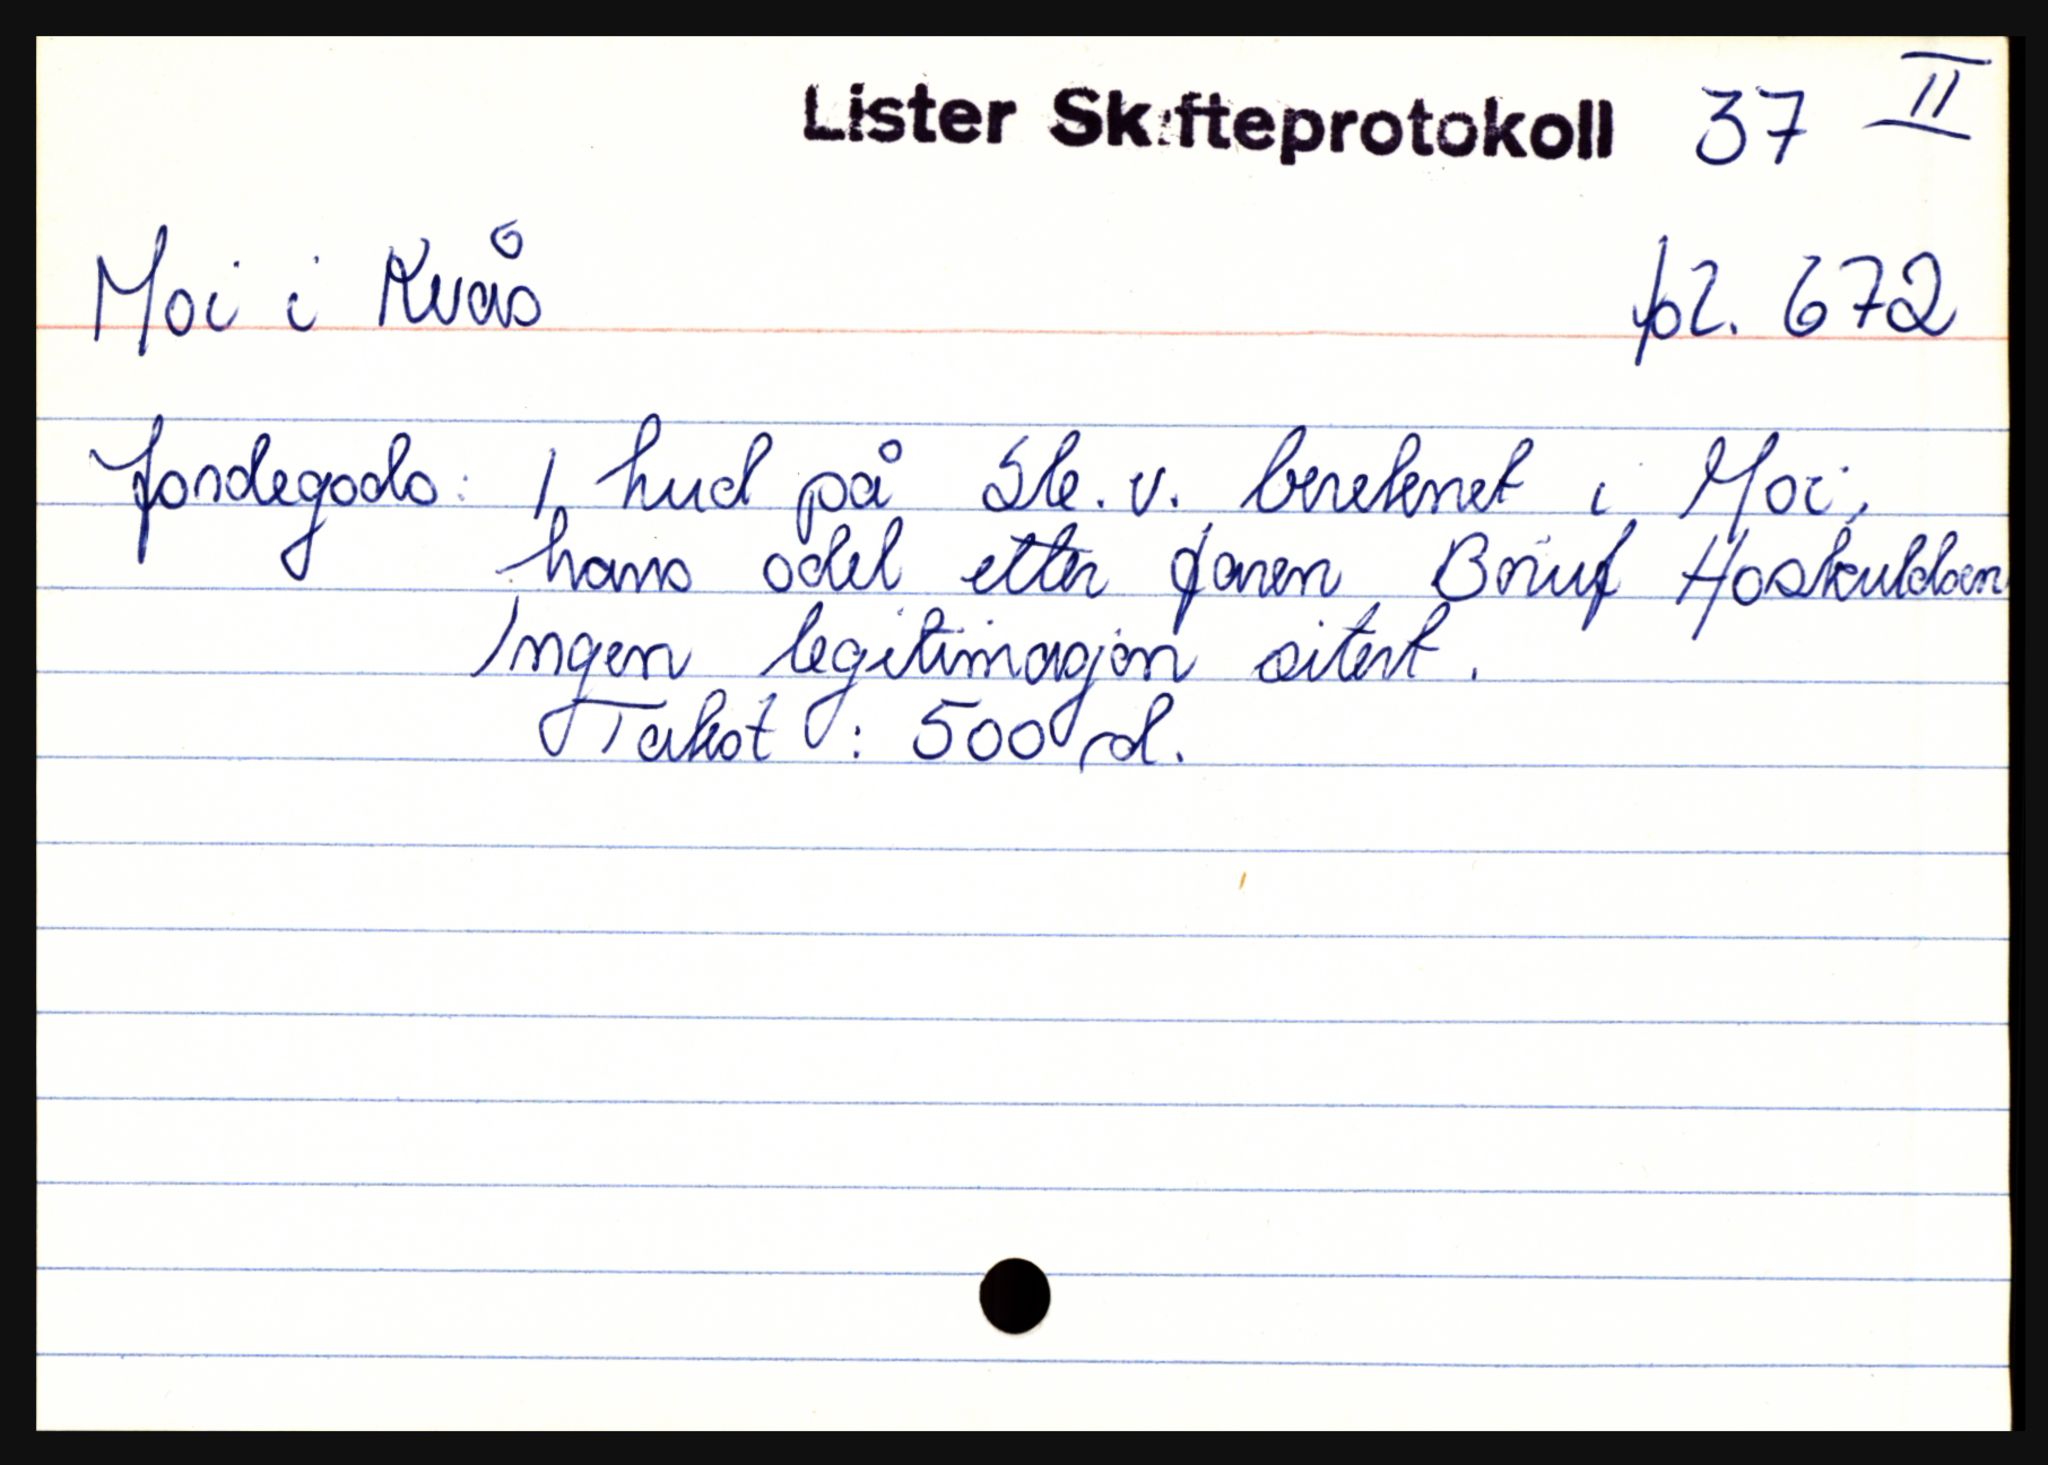 Lister Skifteprotokoll 37 II
Moi i Kvås fol. 672
Jordegods: 1 hud på Ste. v. bereknet i Moi,
hans odel etter faren Briuf Hoskuldsen
Ingen legitimasjon sitert.
Takst: 500 rd.